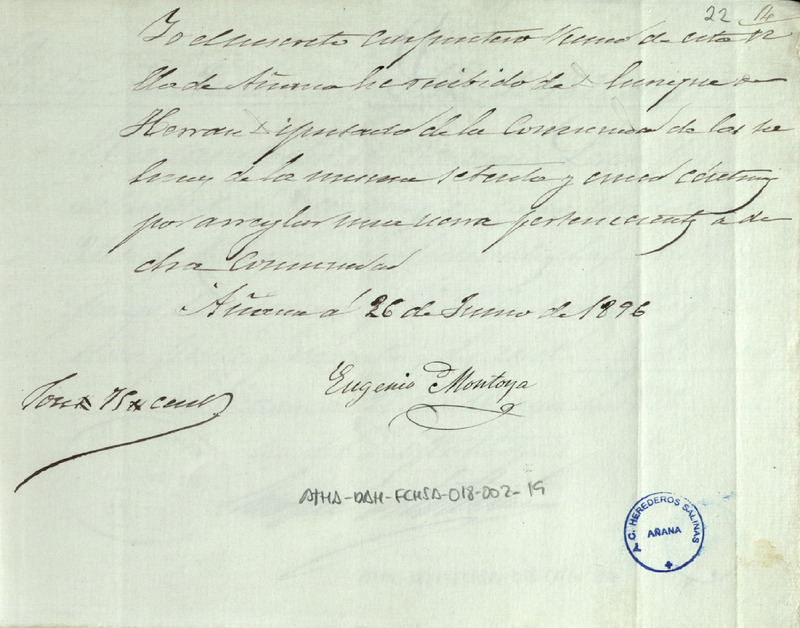 22 14
Yo el infrascrito Carpintero Vecino de esta Vi
lla de Añana he recibido de Enrique
Herran Diputado de la Comunidad de las
de la misma setenta y cinco centmos
por arreglar una perteneciente a di
cha Comunidad
Añana á 26 de Junio de 1896
Eugenio Montoya
Son
ATHA-DAH-FCHSA-018-002-19
A.C. HEREDEROS SALINAS
AÑANA